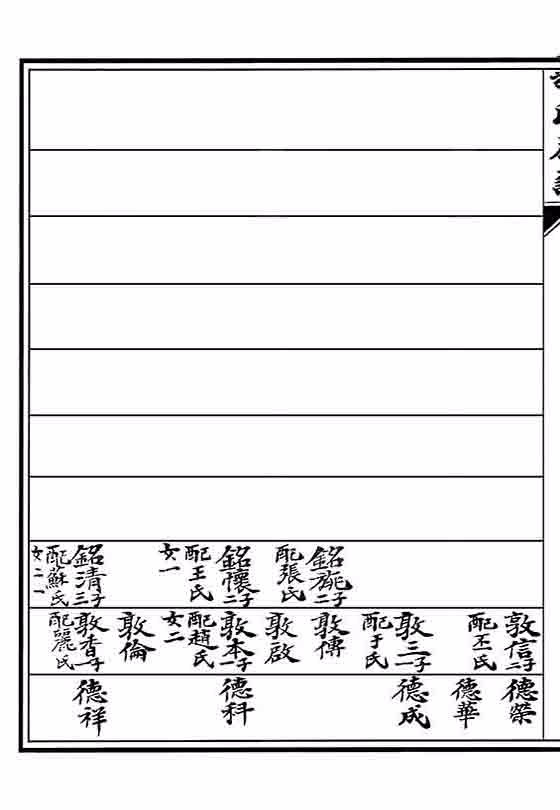 銘旎二子
配張氏
銘懷二子
配王氏
女一
銘清三子
配蘇氏
女二
敦信二子
配丕氏
敦三一子
配于氏
敦傳
敦啟
敦本一子
配趙氏
女二
敦倫
敦香一子
配麗氏
德榮
德華
德成
德科
德祥